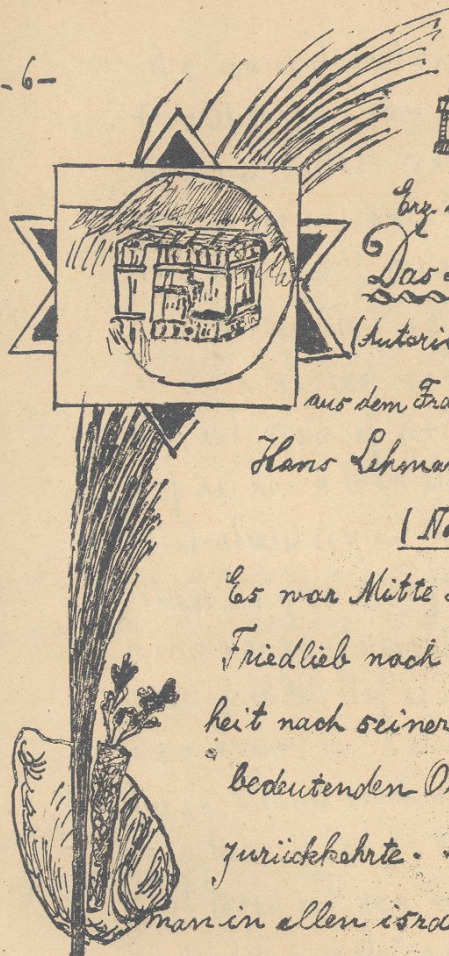 -6-
Erz.
Das
(Autori
aus dem Fra
Hans Lehma
(No
Es war Mitte
Friedlieb nach
heit nach seiner
bedeutenden O
zurückkehrte.
man in allen isra